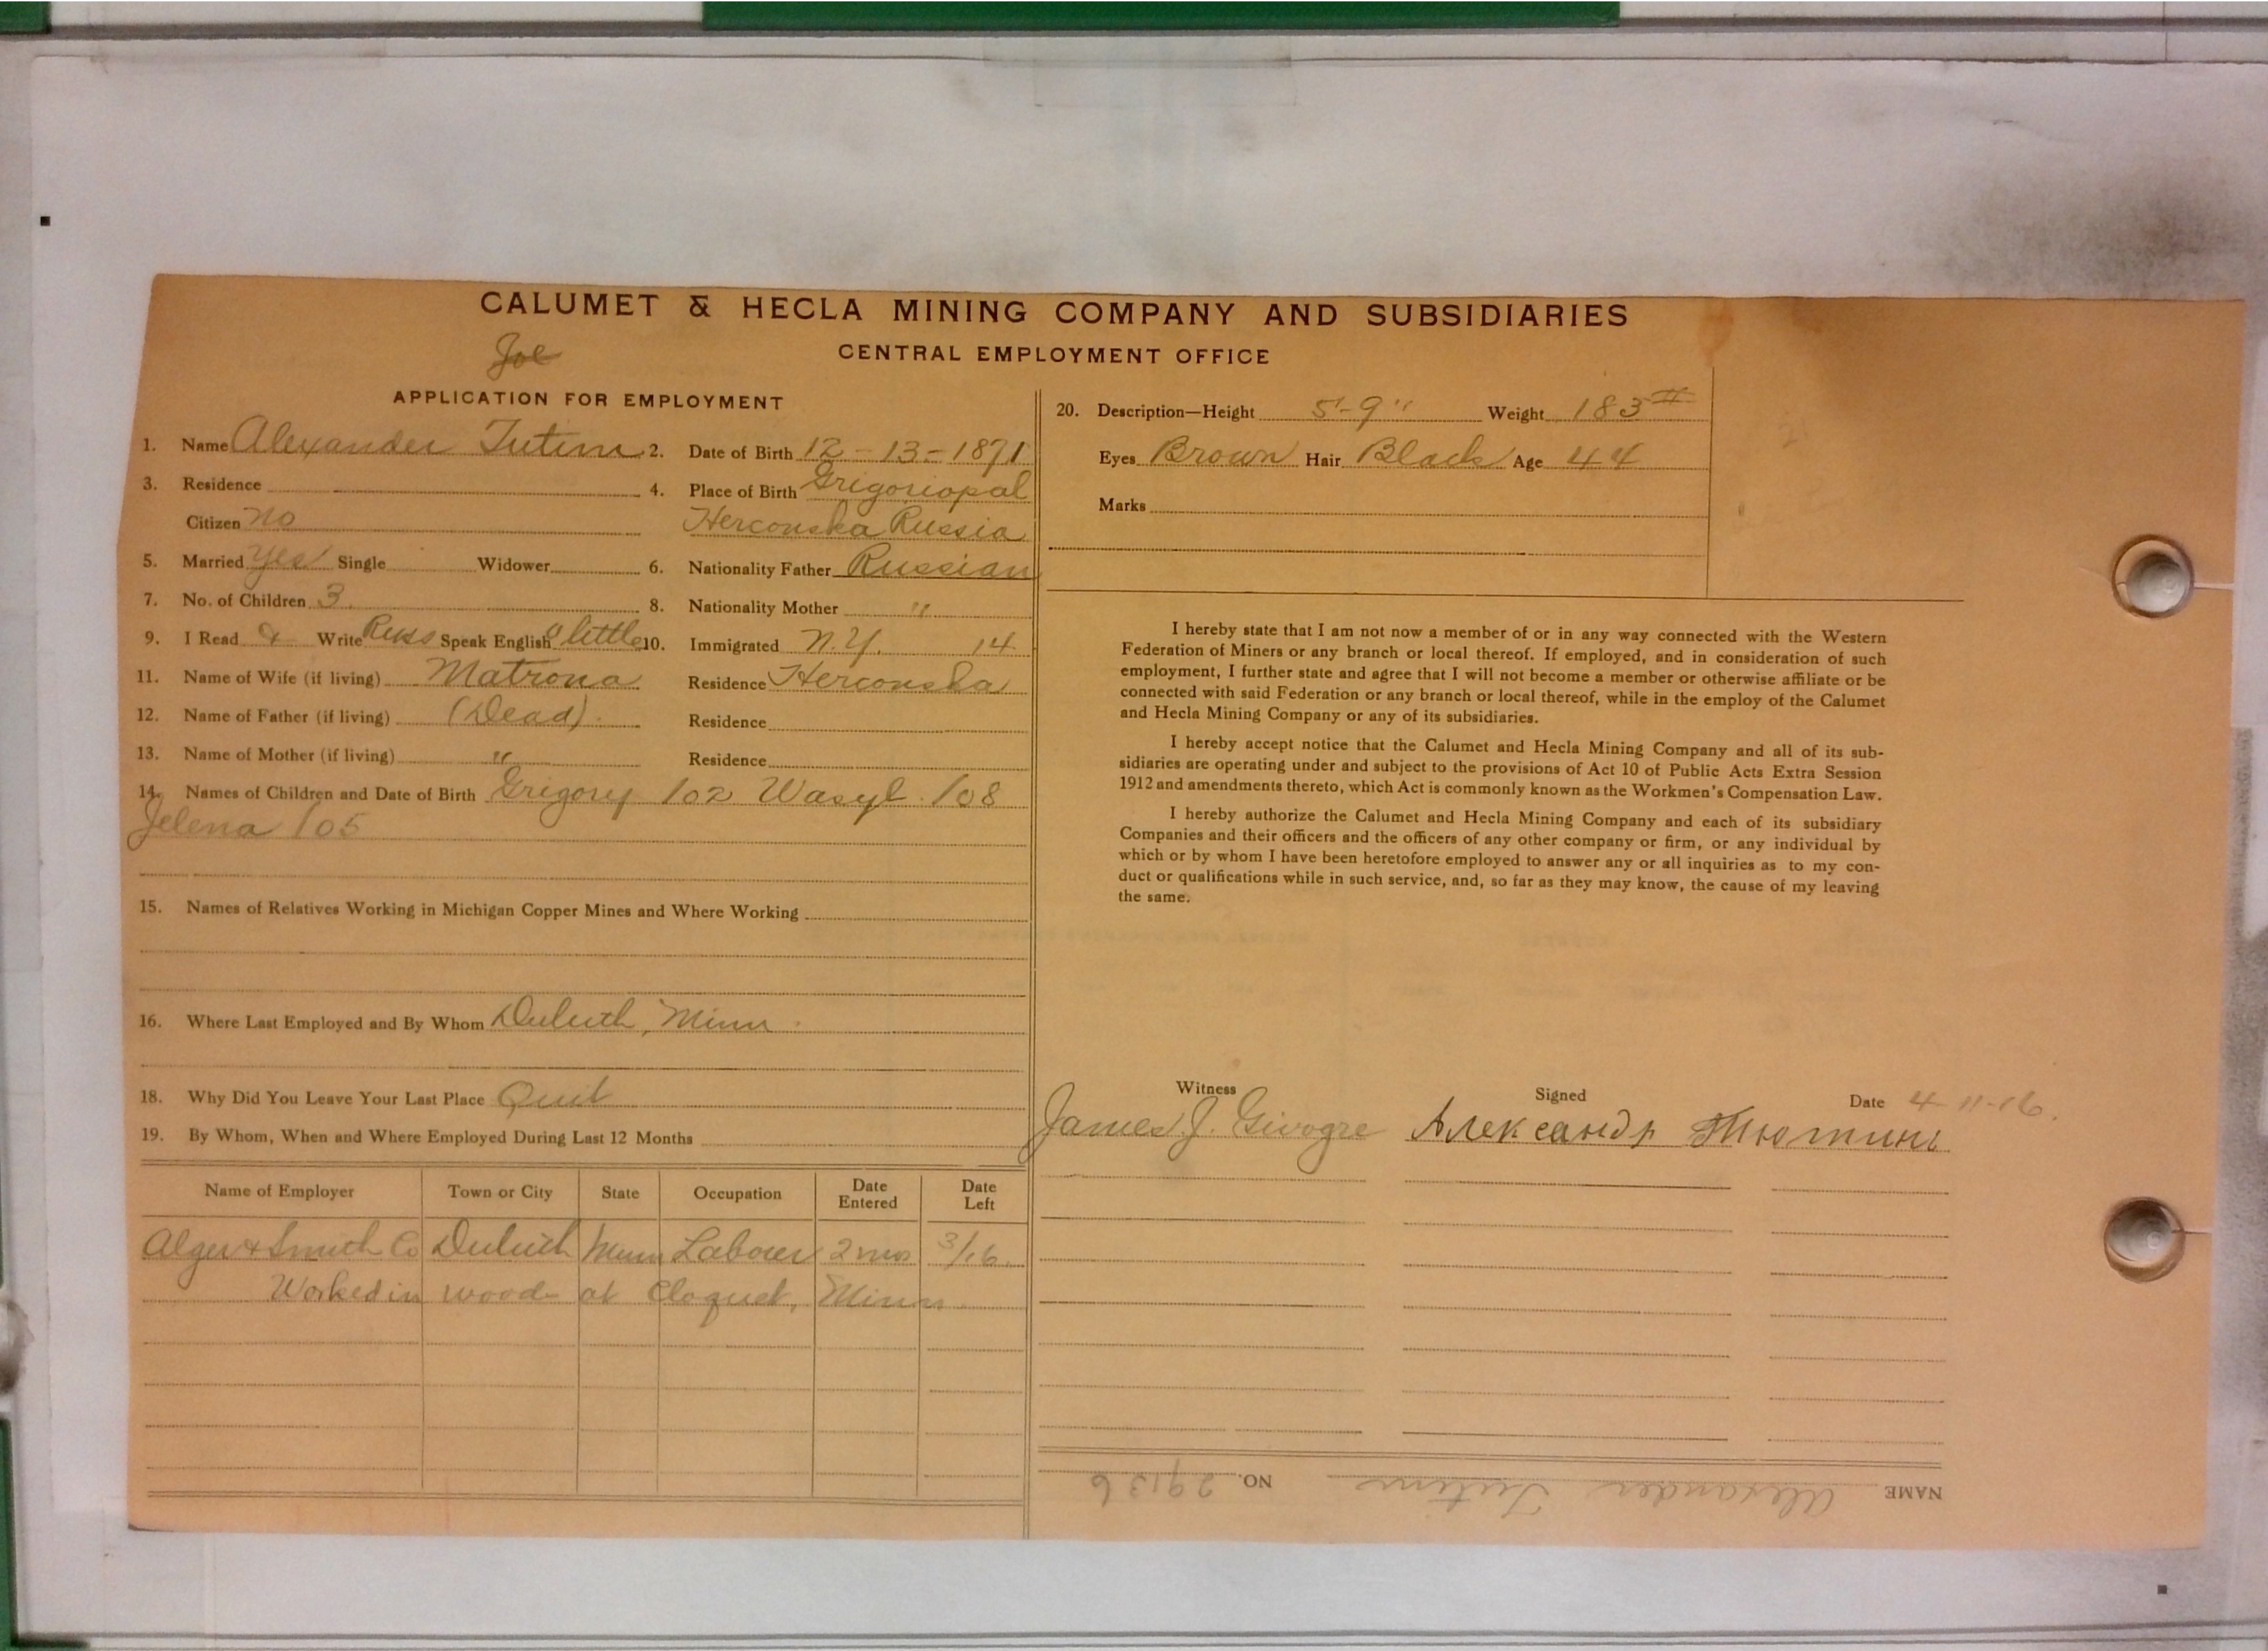 CALUMET & HECLA MINING COMPANY AND SUBSIDIARIES
Joe
CENTRAL EMPLOYMENT OFFICE
APPLICATION FOR EMPLOYMENT
1. Name Alexander Tutin
2. Date of Birth 12-13-1871
3. Residence
4. Place of Birth Grigoriopal
Citizen No
Herconska Russia
5. Married yes Single Widower
6. Nationality Father Russian
7. No. of Children 3
8. Nationality Mother "
9. I Read & Write Russ Speak English little
10. Immigrated N.Y. 14
11. Name of Wife (if living) Matrona Residence Herconska
12. Name of Father (if living) (Dead) Residence
13. Name of Mother (if living) " Residence
14. Names of Children and Date of Birth Grigory /02 Wasyl /08
Jelena /05
15. Names of Relatives Working in Michigan Copper Mines and Where Working
16. Where Last Employed and By Whom Duluth, Minn
18. Why Did You Leave Your Last Place Quit
19. By Whom, When and Where Employed During Last 12 Months
Name of Employer Town or City State Occupation Date Entered Date Left
Alger & Smith Co Duluth Minn Laborer 2 mos 3/16
Worked in woods at Cloquet, Minn.
20. Description—Height 5'-9" Weight 183#
Eyes Brown Hair Black Age 44
Marks
I hereby state that I am not now a member of or in any way connected with the Western
Federation of Miners or any branch or local thereof. If employed, and in consideration of such
employment, I further state and agree that I will not become a member or otherwise affiliate or be
connected with said Federation or any branch or local thereof, while in the employ of the Calumet
and Hecla Mining Company or any of its subsidiaries.
I hereby accept notice that the Calumet and Hecla Mining Company and all of its sub-
sidiaries are operating under and subject to the provisions of Act 10 of Public Acts Extra Session
1912 and amendments thereto, which Act is commonly known as the Workmen's Compensation Law.
I hereby authorize the Calumet and Hecla Mining Company and each of its subsidiary
Companies and their officers and the officers of any other company or firm, or any individual by
which or by whom I have been heretofore employed to answer any or all inquiries as to my con-
duct or qualifications while in such service, and, so far as they may know, the cause of my leaving
the same.
Witness Signed Date 4-11-16.
James J. Александръ Тютинъ
NAME Alexander Tutin NO. 29136